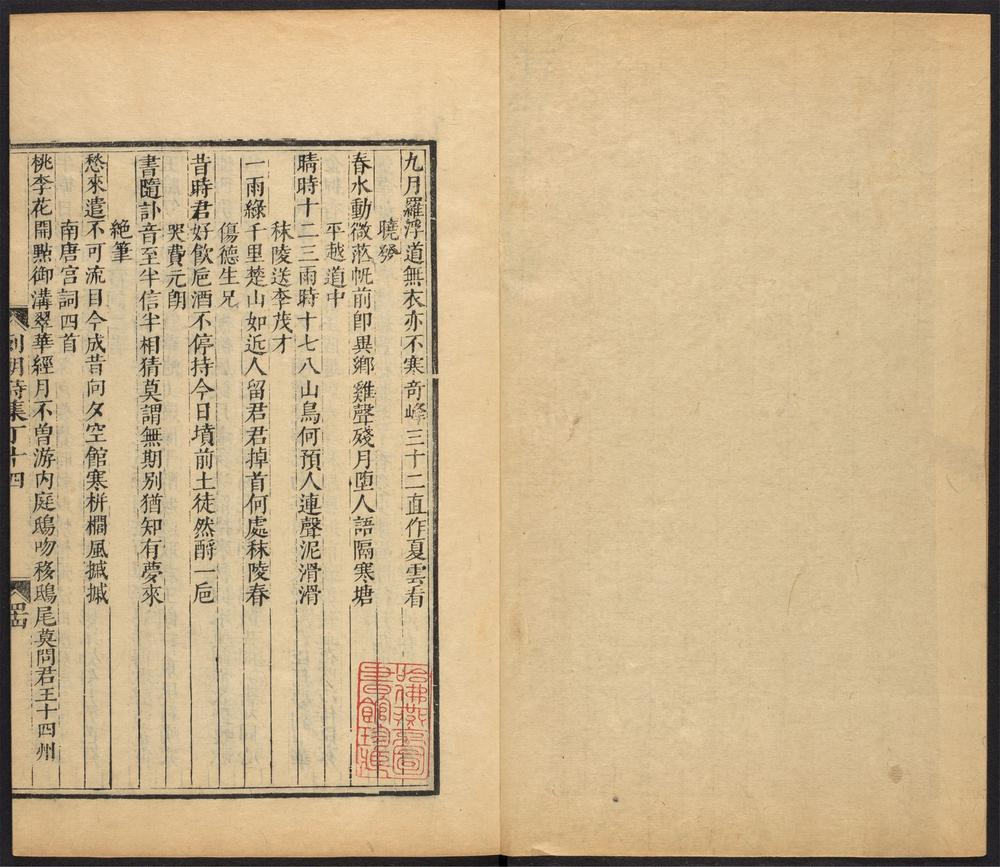 九月羅浮道無衣亦不寒奇峰三十二直作夏雲看
曉發
春水動微茫帆前即異鄉雞聲殘月墮人語隔寒塘
平越道中
晴時十二三雨時十七八山鳥何預人連聲泥滑滑
秣陵送李茂才
一雨綠千里楚山如近人留君君掉首何處秣陵春
傷德生兄
昔時君好飲巵酒不停持今日墳前土徒然酹一巵
哭費元朗
書隨訃音至半信半相猜莫謂無期別猶知有夢來
絶筆
愁來遣不可流目今成昔向夕空館寒栟櫚風摵摵
南唐宮詞四首
桃李花開點御溝翠華經月不曾游内庭鴟吻移鴟尾莫問君王十四州
列朝詩集丁十四
哈佛燕京圖書館珍藏